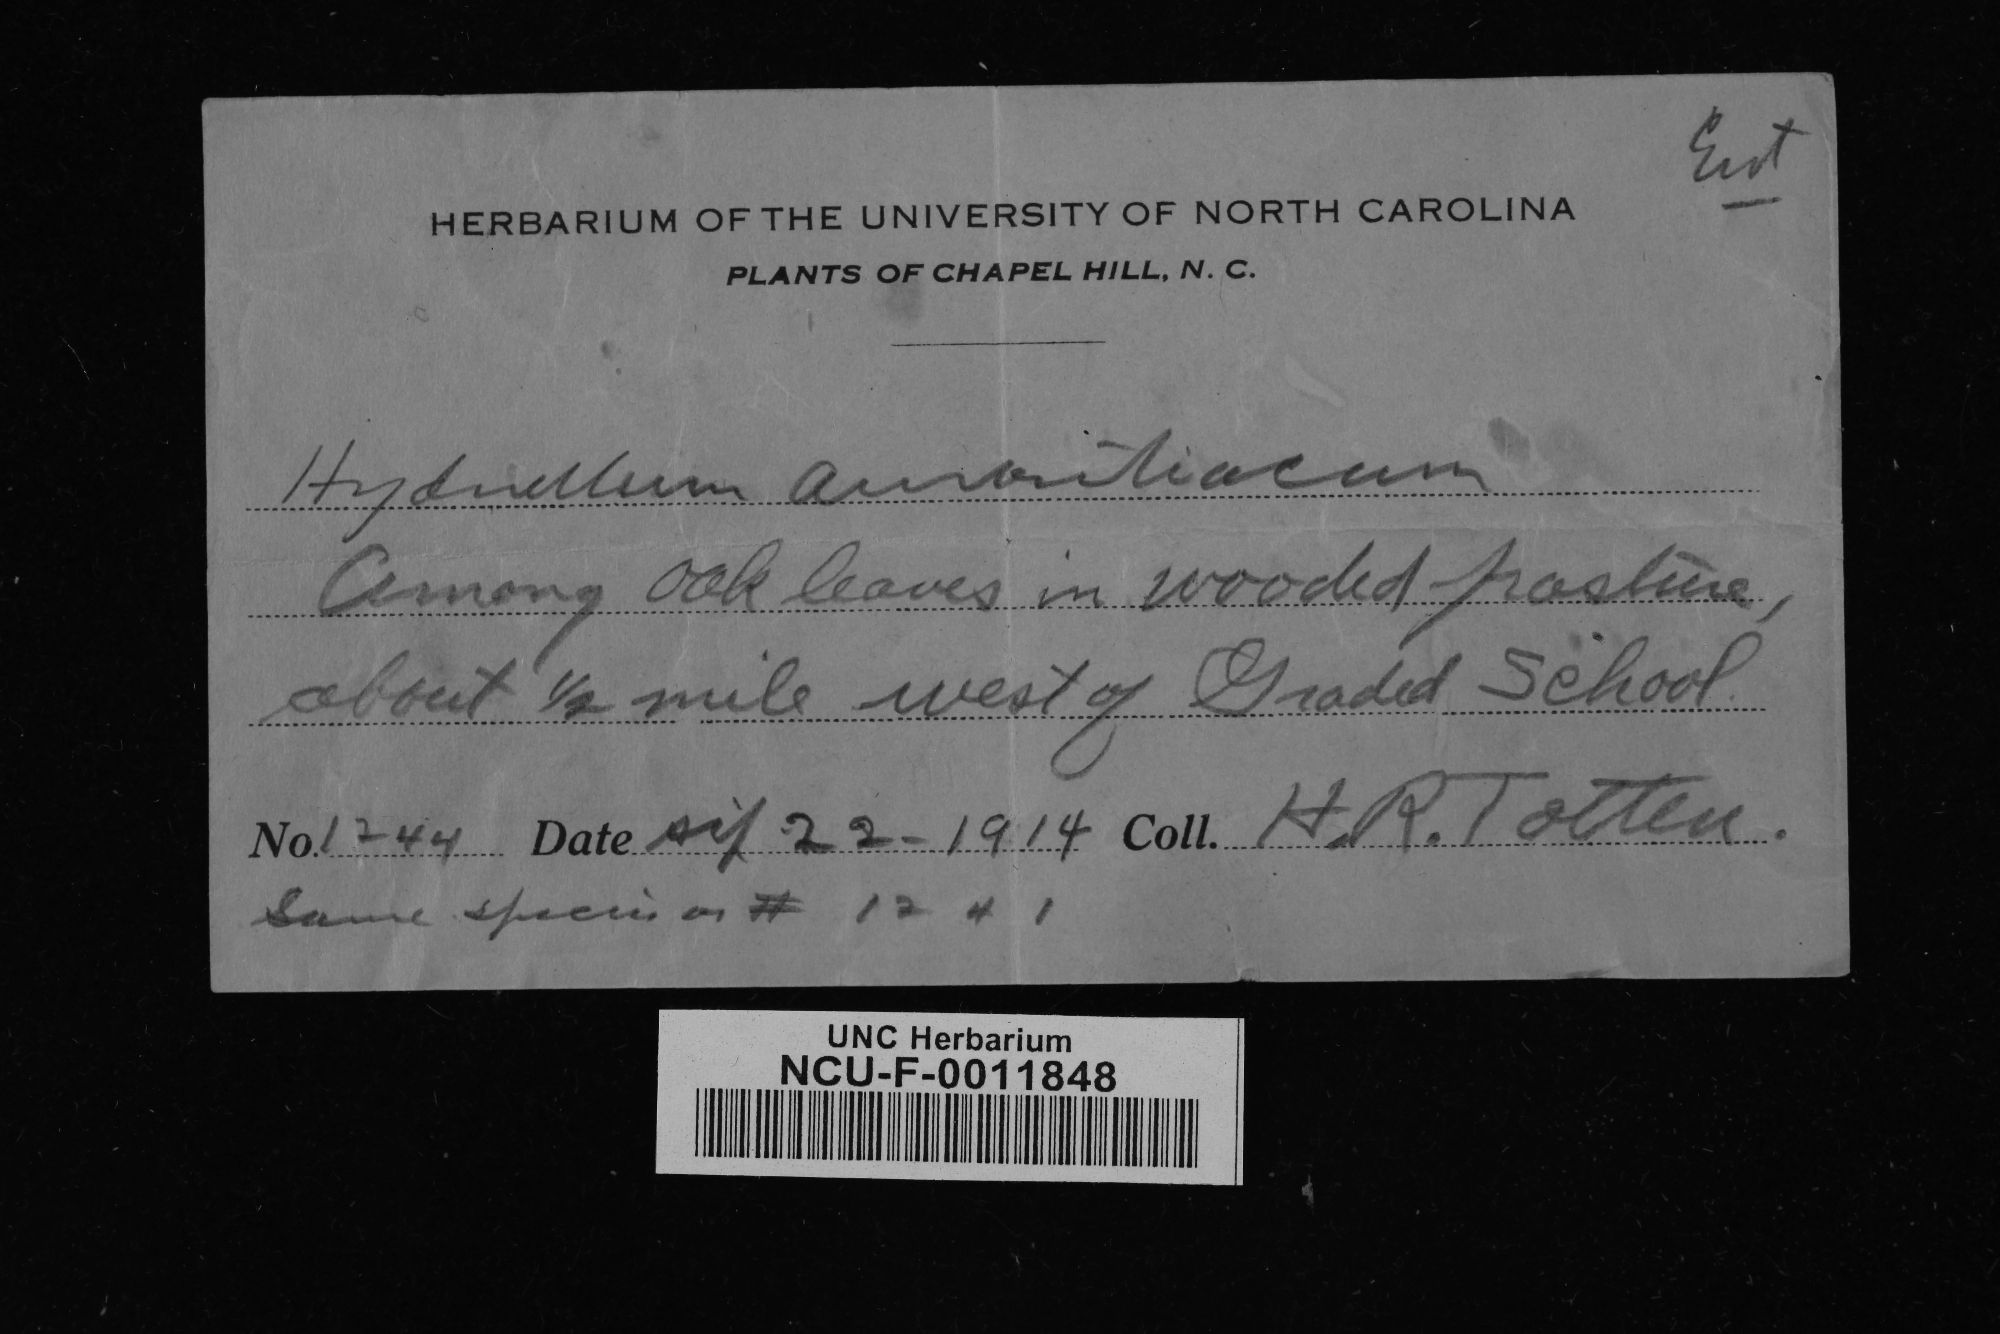 Ent
HERBARIUM OF THE UNIVERSITY OF NORTH CAROLINA
PLANTS OF CHAPEL HILL, N. C.
Hydnellum aurantiacum
Among oak leaves in wooded pasture,
about 1/2 mile west of Graded School.
No. 1244 Date Sep 22-1914 Coll. H. R. Totten.
Same species as # 1241
UNC Herbarium
NCU-F-0011848